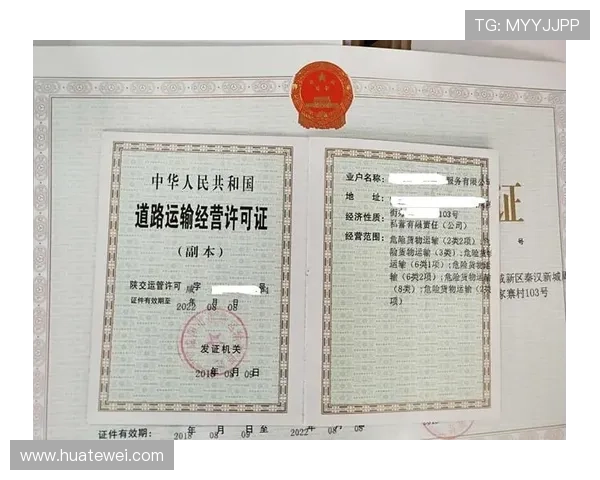 TG: MYYJJPP
中华人民共和国
道路运输经营许可证
(副本)
陕交运管许可 咸 字 号
证件有效期至 2022 年 08 月 08 日
发证机关
2018 年 08 月 09 日
业户名称: 服务有限公司
地 址:
103号
经济性质: 私营有限责任(公司)
经营范围: 危险货物运输(2类2项);危
险货物运输(3类);危险货物
运输(6类1项);危险货物运输
(6类2项);危险货物运输
(8类);危险货物运输(2类
项)
证
号
咸新区秦汉新城
家寨村103号
证件有效期: 2018 年 08 月 09 日至 2022 年 08 月 08 日
www.huatewei.com